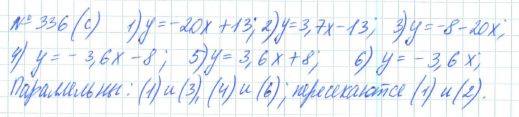 № 336 (с) 1) y = -20x + 13; 2) y = 3,7x - 13; 3) y = -8 - 20x;
4) y = - 3,6x - 8; 5) y = 3,6x + 8; 6) y = - 3,6x;
Параллельны: (1) и (3), (4) и (6); пересекаются (1) и (2).